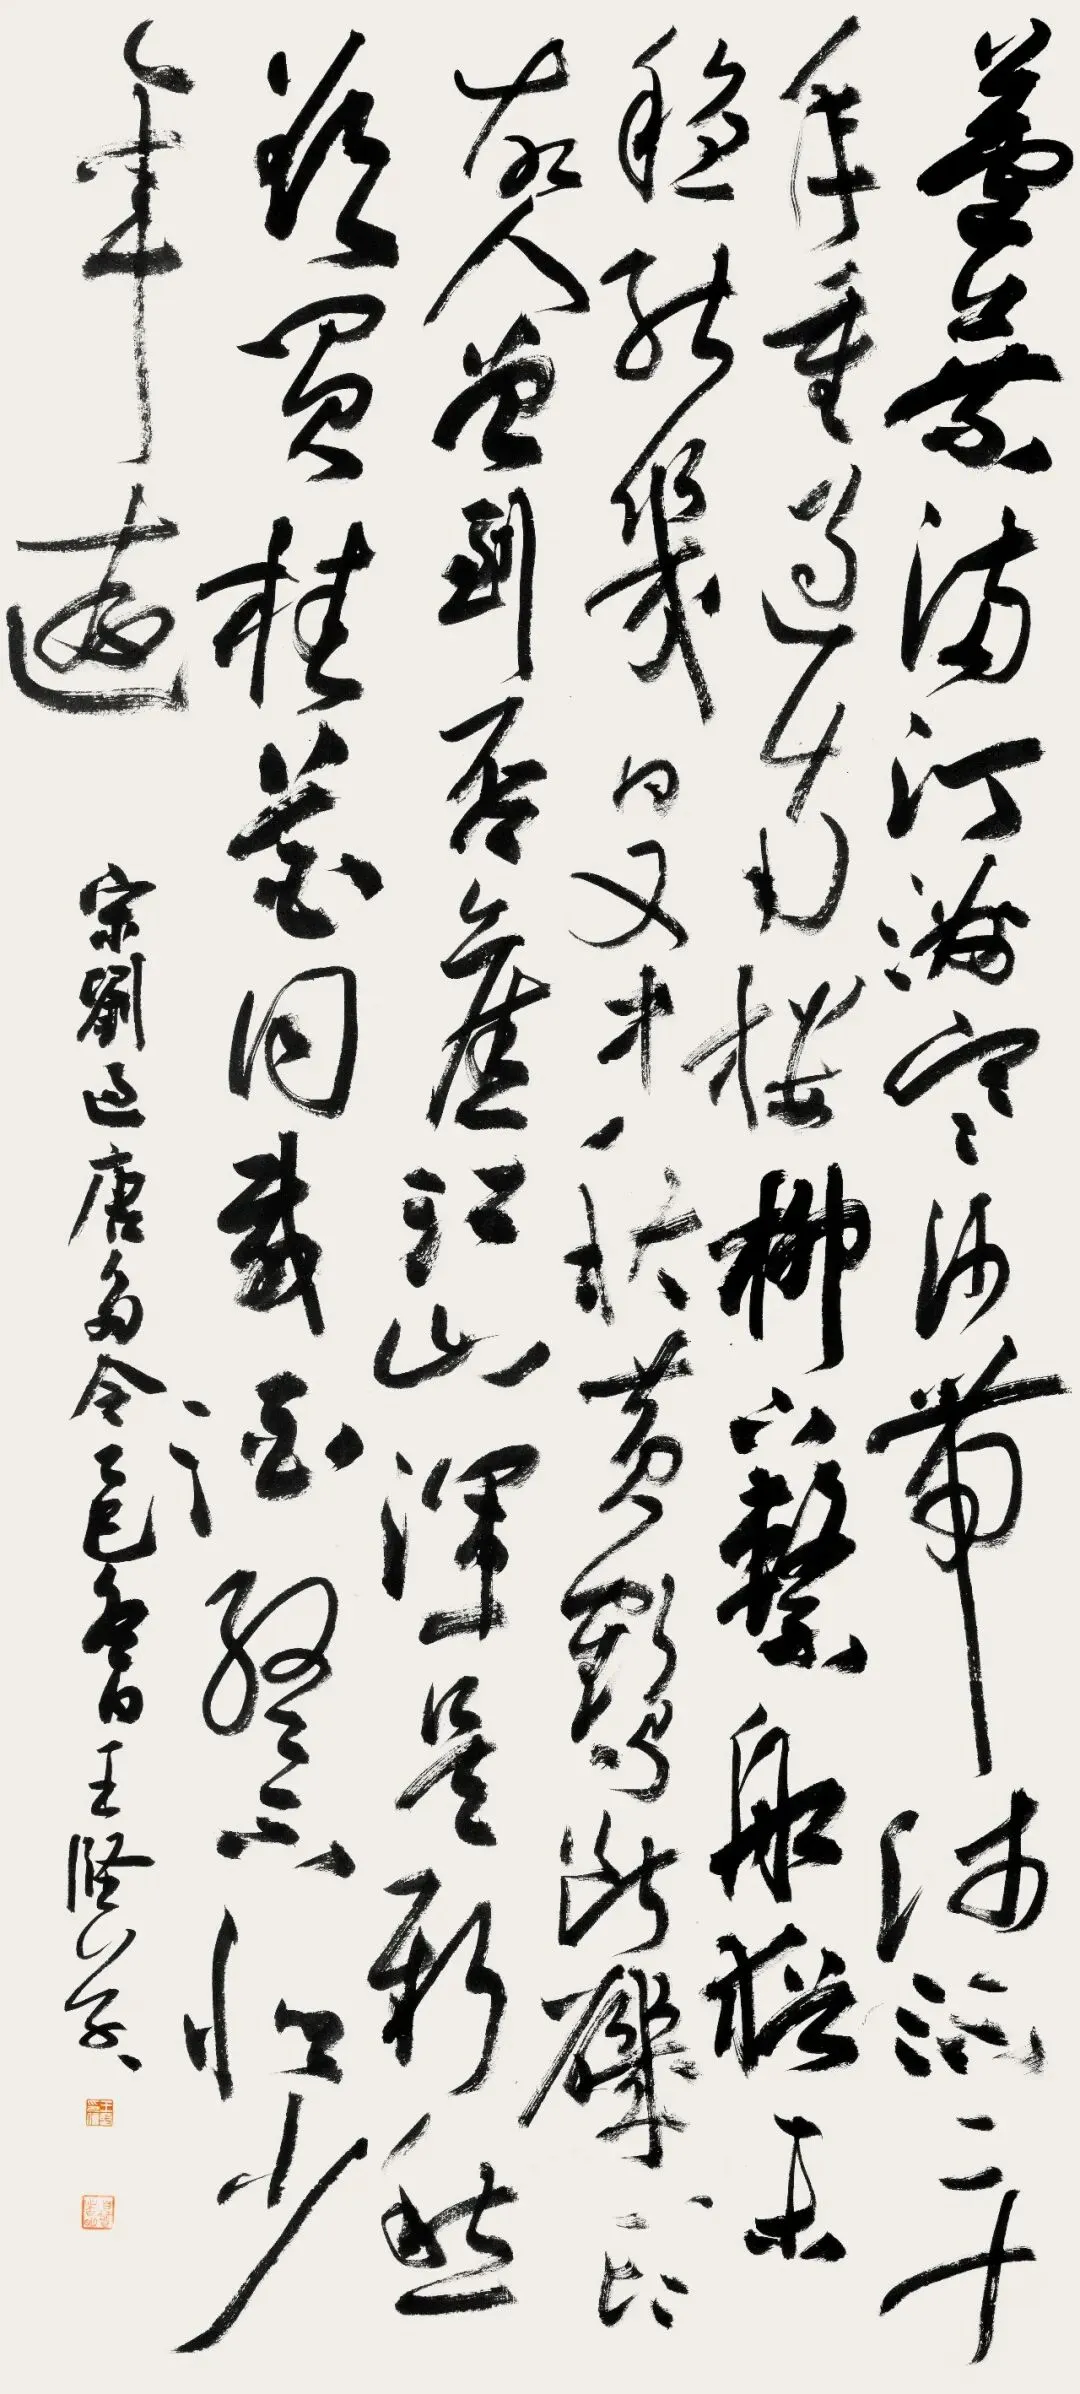 蘆葉滿汀洲寒沙帶淺流二十
年重過南樓柳下繫船猶未
穩能幾日又中秋黃鶴斷磯頭
故人曾到否舊江山渾是新愁
欲買桂花同載酒終不似少
年遊
宋劉過唐多令乙巳日王